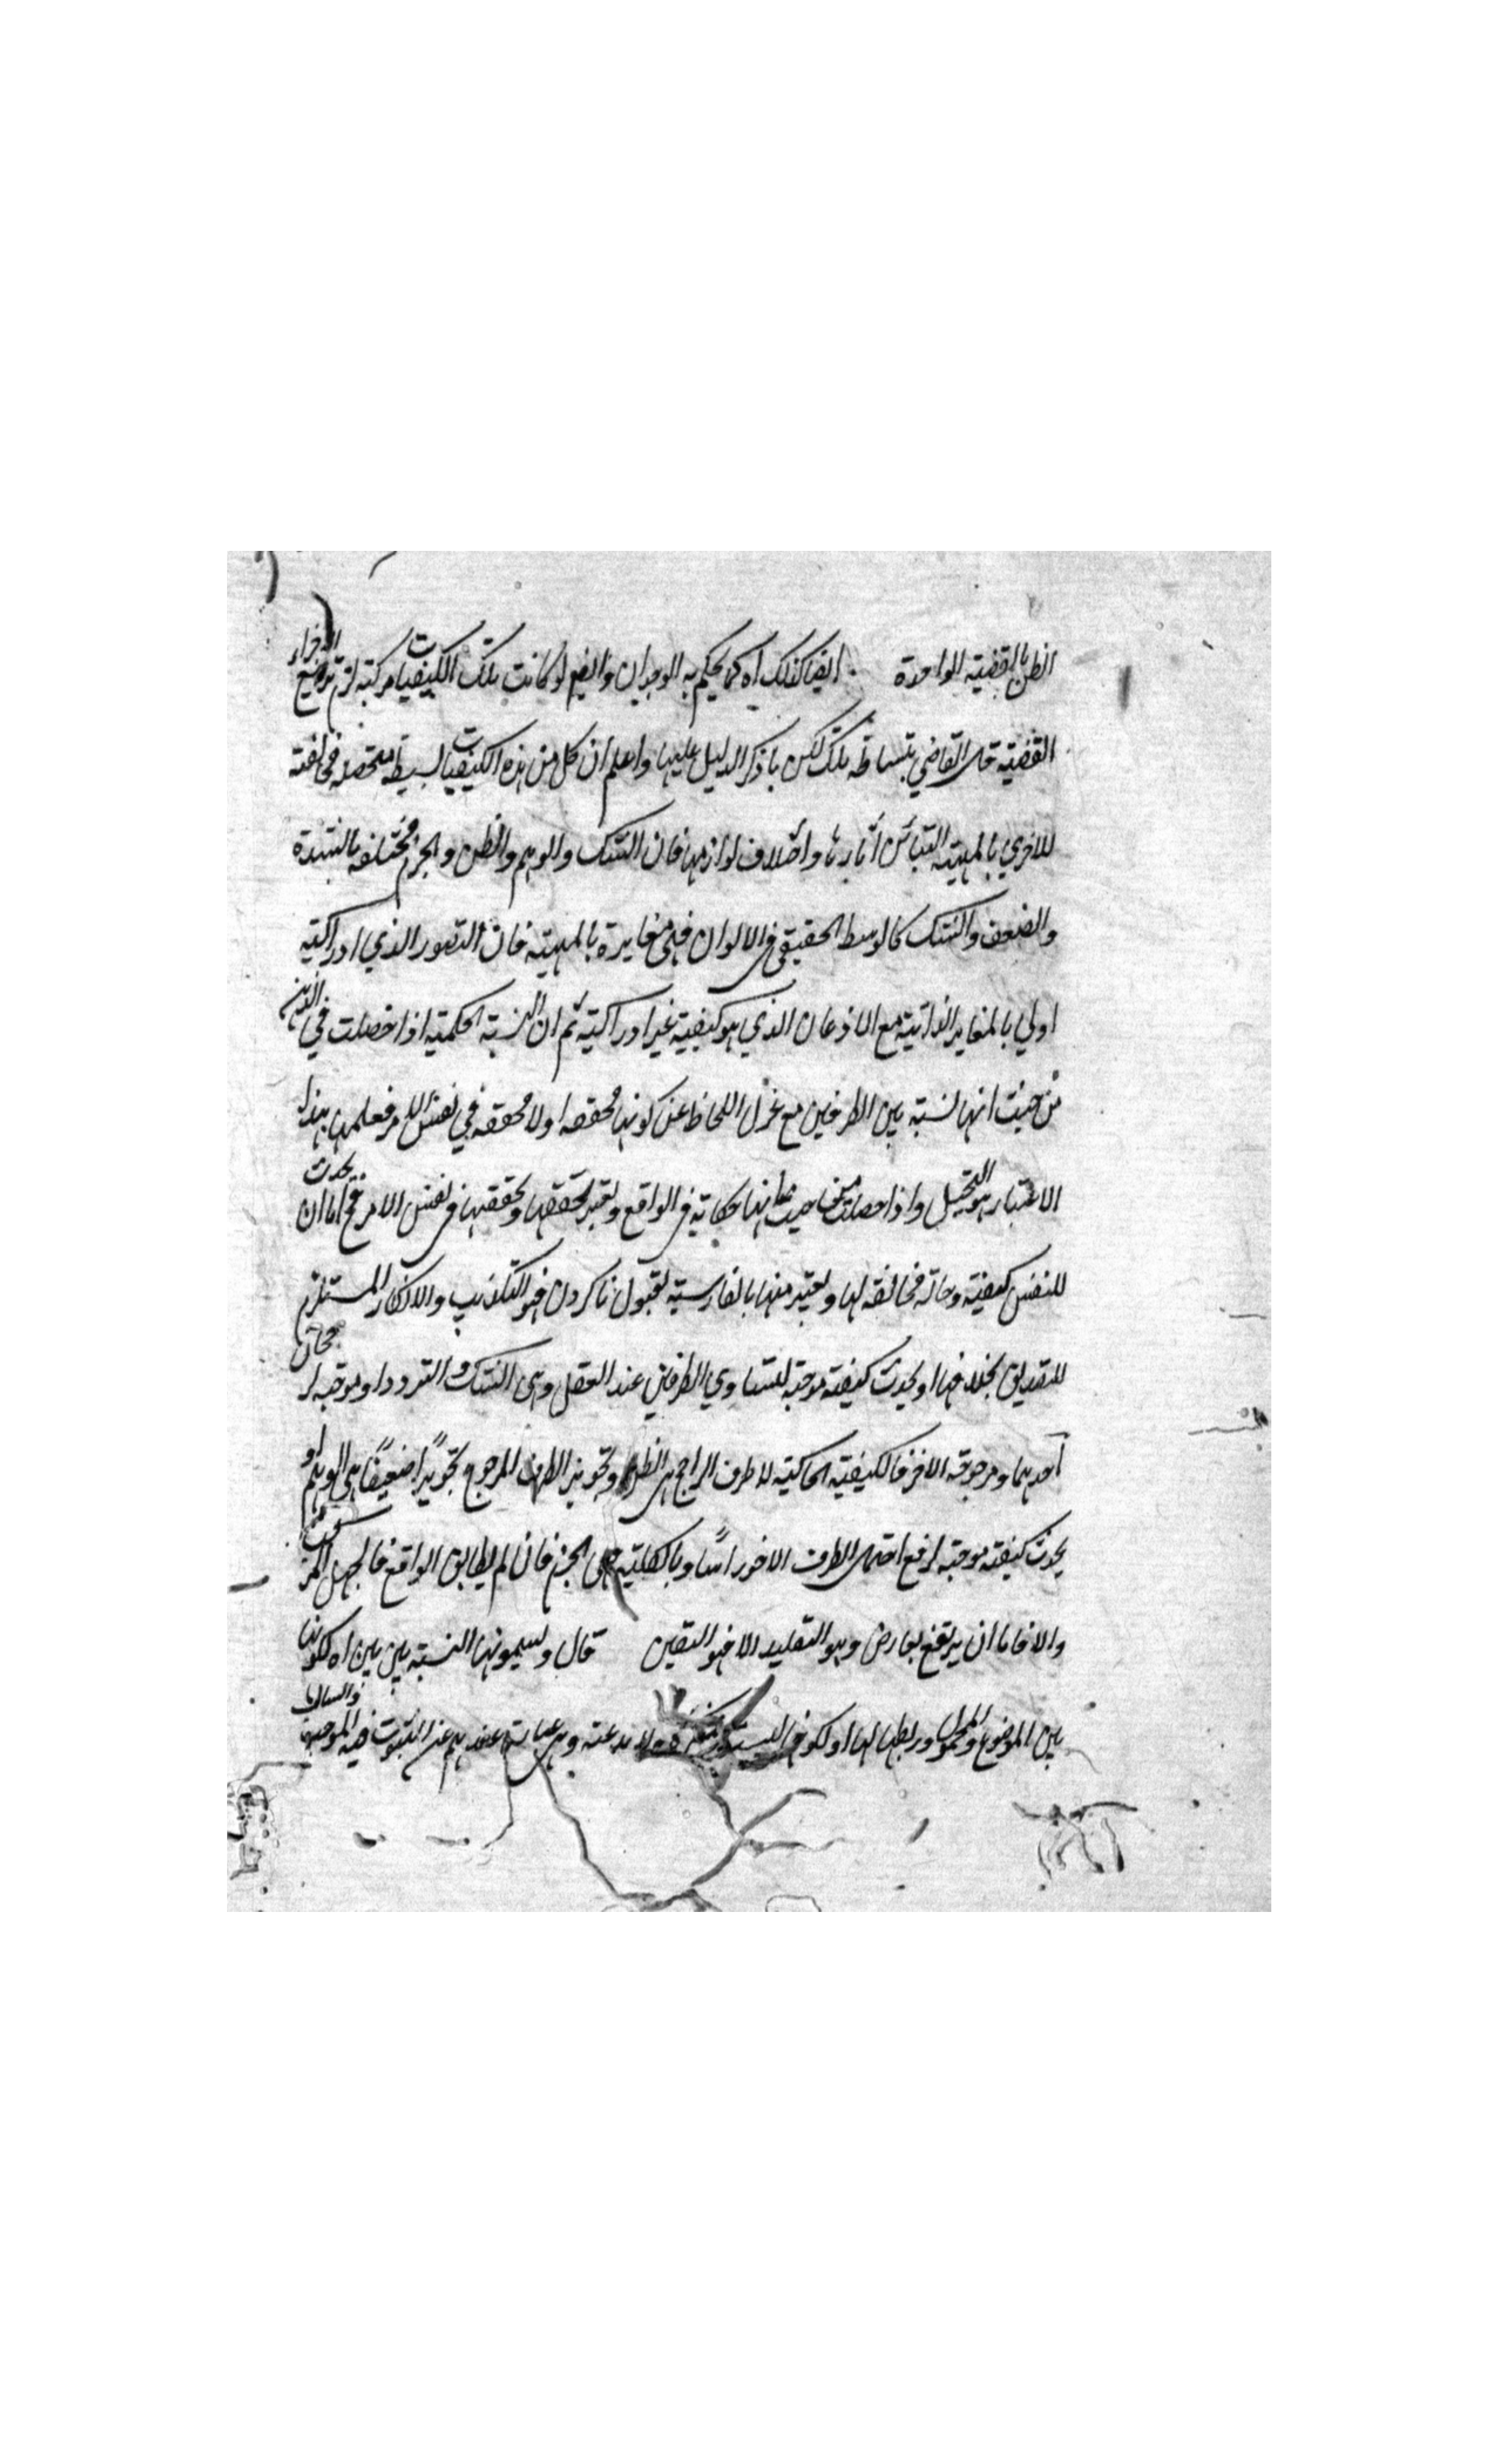 الظن بالقضية الواحدة ايضا كذلك اه كما يحكم به الوجدان وايضا لو كانت تلك الكيفيات مركبة لزم تربيع الاجزاء
القضية قال القاضي ببساطة تلك لكن ما ذكر الدليل عليها واعلم ان كل من هذه الكيفيات بسيطة متحصلة مخالفة
للاخري بالمهية لتباين آثارها واختلاف لوازمها فان الشك والوهم والظن والجزم مختلفة بالشدة
والضعف والشك كالوسط الحقيقي في الالوان فهي مغايرة بالمهية فان التصور الذي ادراكية
اولي بالمغايرة الذاتية مع الاذعان الذي هو كيفية غير ادراكية ثم ان النسبة الحكمية اذا حصلت في الذهن
من حيث انها نسبة بين الطرفين مع عزل اللحاظ عن كونها محققة اولا محققة في نفس الامر فعلمها بهذا
الاعتبار هو التخييل واذا حصلت من حيث انها حكاية في الواقع ويعتبر تحققها في نفس الامر فح اما ان يحدث
للنفس كيفية وحالة مخالفة لها ويعتبر منها بالفارسية بقبول ناكردن فهو التكذيب والانكار المستلزم
للتصديق بخلافها او يحدث كيفية موجبة لتساوي الطرفين عند العقل وهي الشك والتردد او موجبة لرجحان
احدهما ومرجوحية الاخر فالكيفية الحاكية للطرف الراجح هي الظن وتجويز الطرف المرجوح تجويزا ضعيفا هي الوهم او
يحدث كيفية موجبة لرفع احتمال الطرف الاخر راسا وبالكلية هي الجزم فان لم يطابق الواقع فالجهل المركب
والا فاما ان يرتفع بعارض وهو التقليد الا فهو اليقين قال ويسمونها النسبة بين بين اه لكونها
بين الموضوع والمحمول وربطها لها او لكونها وهي عبارة عندهم عن الثبوت في الموجبة والسالبة